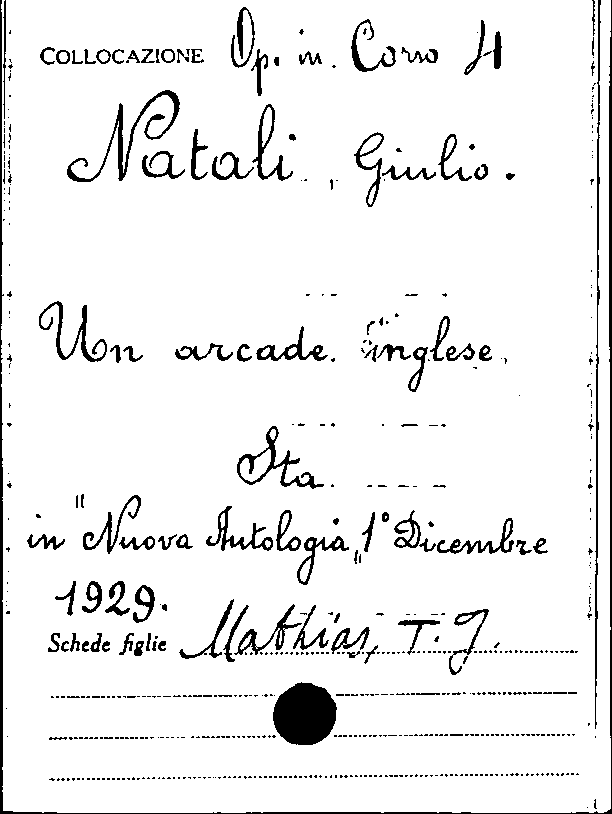 COLLOCAZIONE Op. in Corso 4
Natali, Giulio.
Un arcade inglese
Sta
in "Nuova Antologia„ 1° Dicembre
1929.
Schede figlie Mathias, T. J.